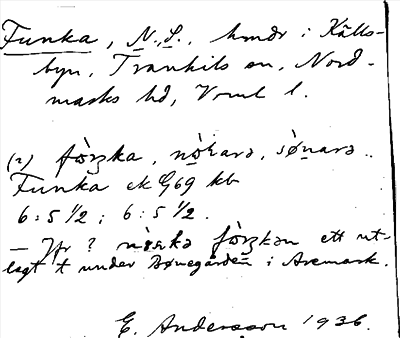 Funka, N., S., hmdr i Källs-
byn, Trankils sn, Nord-
marks hd, Vrml l.
(2) fòŋka, nòrarə, sø̀narə..
Funka ek G69 kb
6:5 1/2; 6:5 1/2.
— Jfr ? fòŋkən ett ut-
lagt t under Bønegården i Aremark.
E. Andersson 1936.